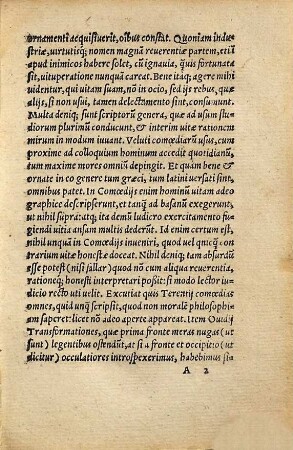 ornamenti acquisiuerit, oĩbus constat. Quoniam indu
striæ, virtutisq; nomen magnã reuerentiæ partem, etiã
apud inimicos habere solet, cũ ignauia, quis fortunata
sit, uituperatione nunquã careat. Bene itaq; agere mihi
uidentur, qui uitam suam, nõ in ocio, sed ijs rebus, quæ
alijs, si non usui, tamen delectamento sint, consumunt.
Multa deniq; sunt scriptorũ genera, quæ ad usum stu/
diorum plurimũ conducunt, & interim uitæ rationem
mirum in modum iuuant. Veluti comœdiarũ usus, cum
proxime ad colloquium hominum accedit quotidianũ,
tum maxime mores omniũ depingit. Et quàm bene et
ornate in eo genere tum græci, tum latini uersati sint,
omnibus patet. In Comœdijs enim hominũ uitam adeo
graphice descripserunt, et tanq̃ ad basanũ exegerunt,
ut nihil supra: tatq; ita demũ ludicro exercitamento fu/
giendi uitia ansam multis dederũt. Id enim certum est,
nihil unquã in Comœdijs inueniri, quod uel q̃nicq; con
trarium uitæ honestæ doceat. Nihil deniq; tam absurdũ
esse potest (nisi fallar) quod nõ cum aliqua reuerentia,
rationeq; honesti interpretari possit: si modo lector iu/
dicio recto uti uelit. Excutiat quis Terentij comœdias
omnes, quid unq̃ scripsit, quod non moralẽ philosophi
am saperet: licet nõ adeo aperte appareat. Item Ouidij
Transformationes, quæ prima fronte meras nugas (ut
sunt) legentibus ostendũt, at si a fronte et occipitio (ut
dicitur) occulatiores introspexerimus, habebimus sta
A 2